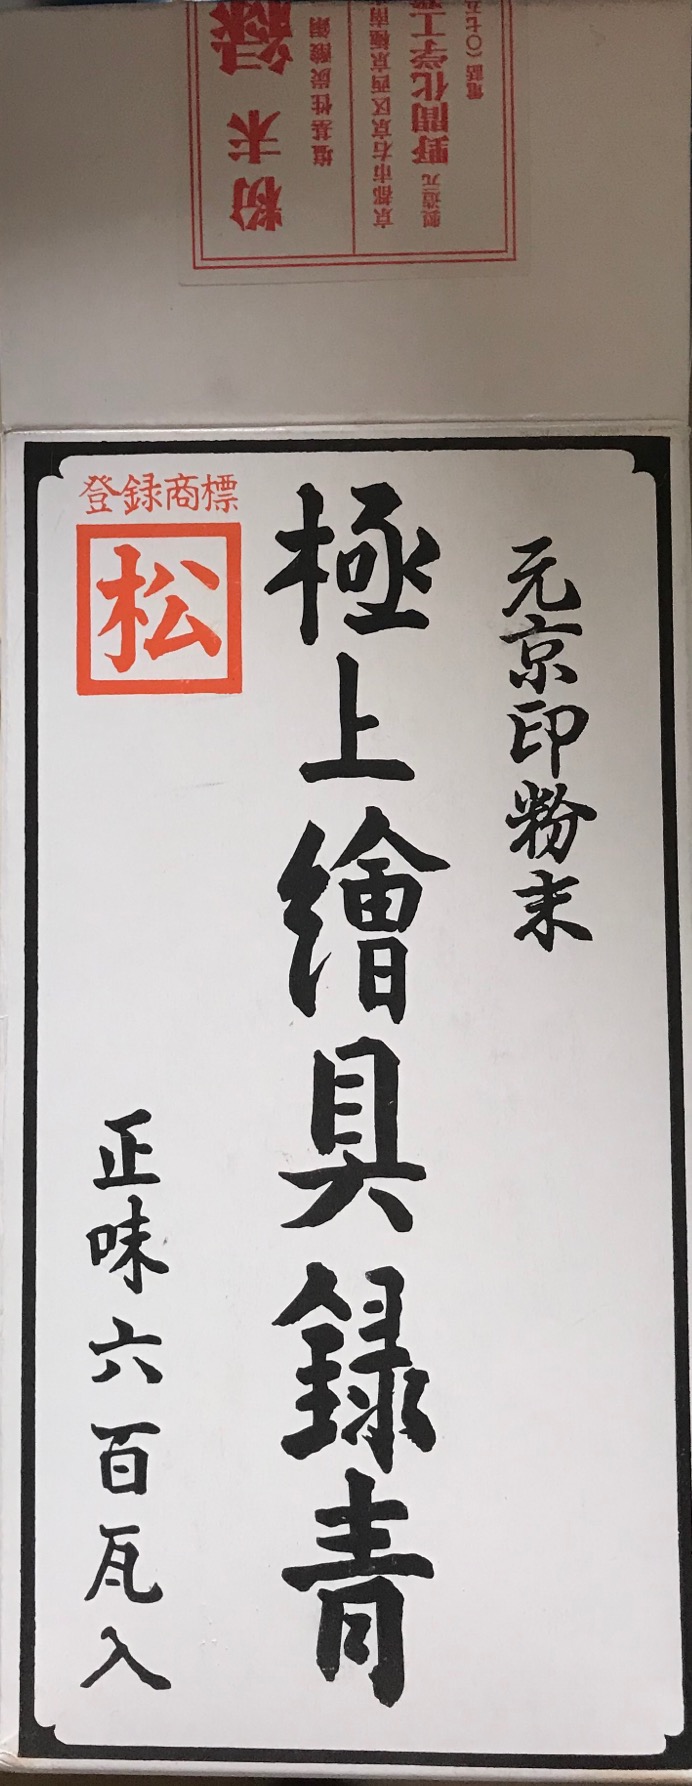 粉末緑
塩基性炭酸銅
京都市右京区西京極南
製造元 野間化学工
電話(〇七五
元京印粉末
極上繪具録青
登録商標
松
正味六百瓦入